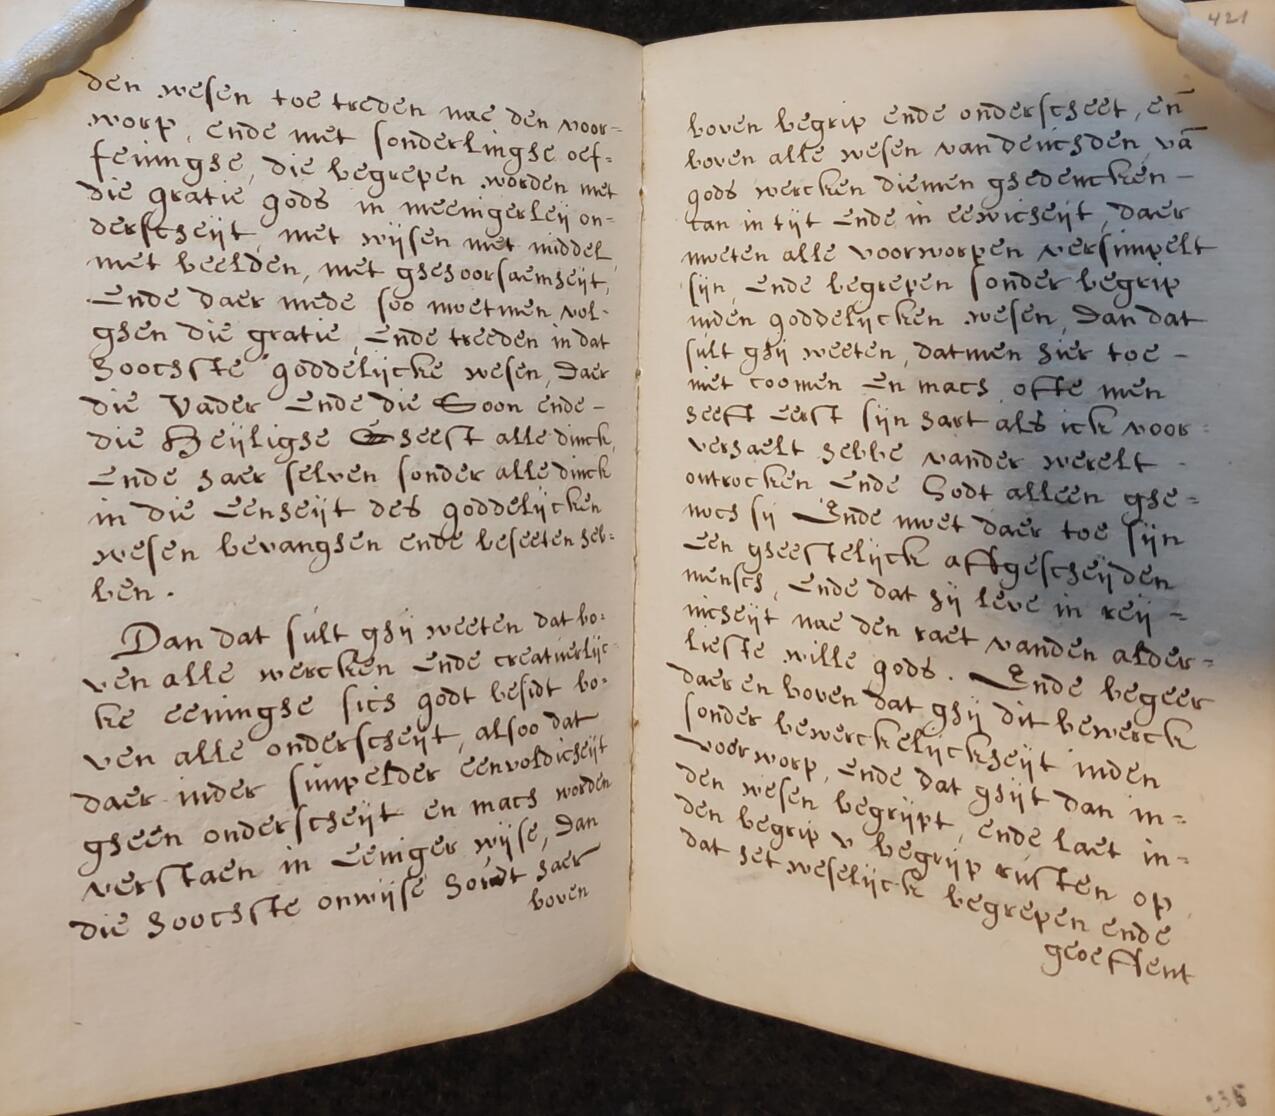 den wesen toe treden nae den voor=
worp, ende met sonderlinghe oef=
feninghe, die begrepen worden met
die gratie gods in meenigerleij on=
derscheijt, met wijsen met middel
met beelden, met ghehoorsaemheijt,
Ende daer mede soo moetmen vol-
ghen die gratie, Ende treeden in dat
hoochste goddelijcke wesen, daer
die Vader Ende die Soon ende -
die Heijlighe Gheest alle dinck
Ende haer selven sonder alle dinck
in die Eenheijt des goddelijcken
wesen bevanghen ende beseeten heb=
ben.
Dan dat sult ghij weeten dat bo=
ven alle wercken Ende creatuerlijc=
ke eeninghe sich godt besidt bo=
ven alle onderscheijt, alsoo dat
daer inder simpelder eenvoldicheijt
gheen onderscheijt en mach worden
verstaen in Eeniger wijse, dan
die hoochste onwijse houdt haer
boven
421
boven begrip ende onderscheet, en̄
boven alle wesen van deuchden, vā
gods wercken diemen ghedencken -
can in tijt Ende in eewicheijt, daer
moeten alle voorworpen versimpelt
sijn, Ende begrepen sonder begrip
inden goddelijcken wesen, Dan dat
sult ghij weeten, datmen hier toe -
niet coomen En mach ofte men
heeft Eerst sijn hart als ick voor=
verhaelt hebbe vander werelt -
ontrocken Ende Godt alleen ghe=
noch sij Ende moet daer toe sijn
Een gheestelijck affgescheijden
mensch, Ende dat hij leve in reij=
nicheijt nae den raet vanden alder=
lieste wille gods. Ende begeer
daer en boven dat ghij dit bewerck
sonder bewerckelijckheijt inden
voorworp, Ende dat ghijt dan in=
den wesen begrijpt, ende laet in=
den begrip v begrijp rusten op
dat het weselijck begrepen ende
geoeffent